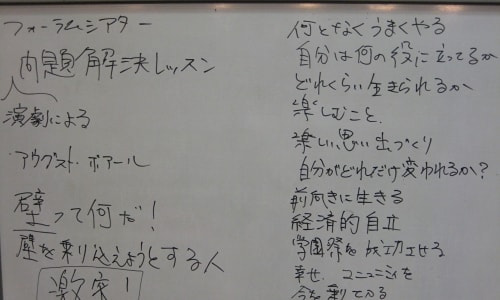 フォーラムシアター
問題解決レッスン
演劇による
アウグスト・ボアール
壁って何だ!
壁を乗り越えようとする人
激突!
何となくうまくやる
自分は何の役に立ってるか
どれくらい生きられるか
楽しむこと、
楽しい思い出づくり
自分がどれだけ変われるか?
前向きに生きる
経済的自立
学園祭を成功させる
幸せ、コミュニティを